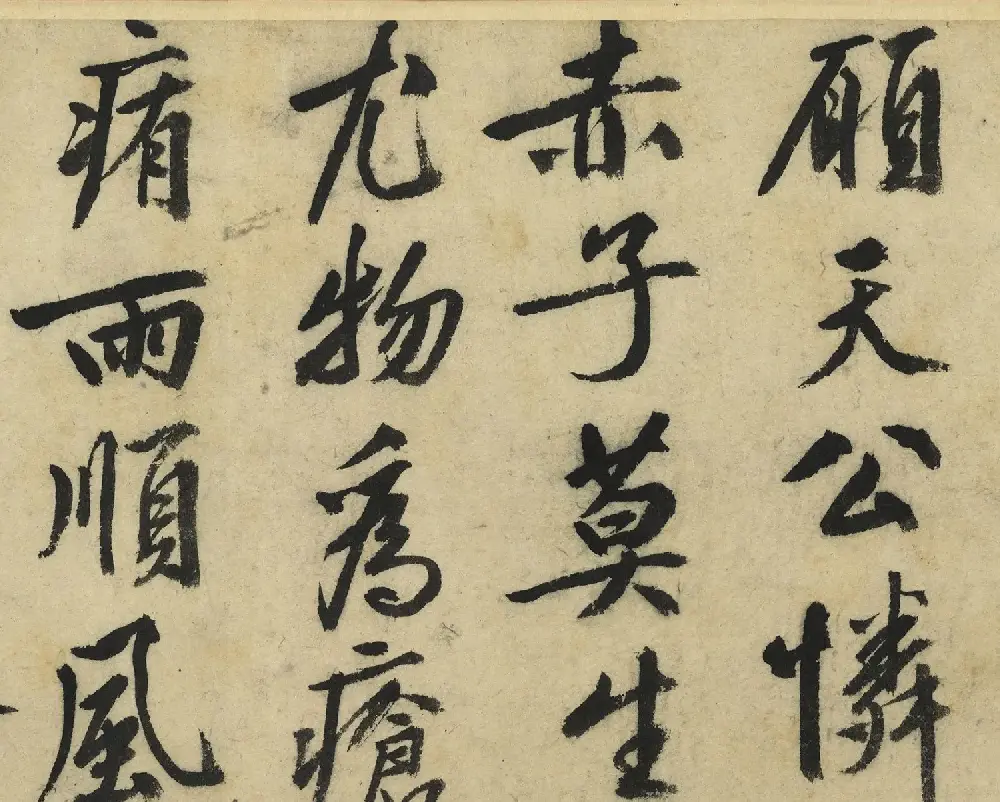 願天公憐
赤子莫生
尤物爲瘡
痏雨順風